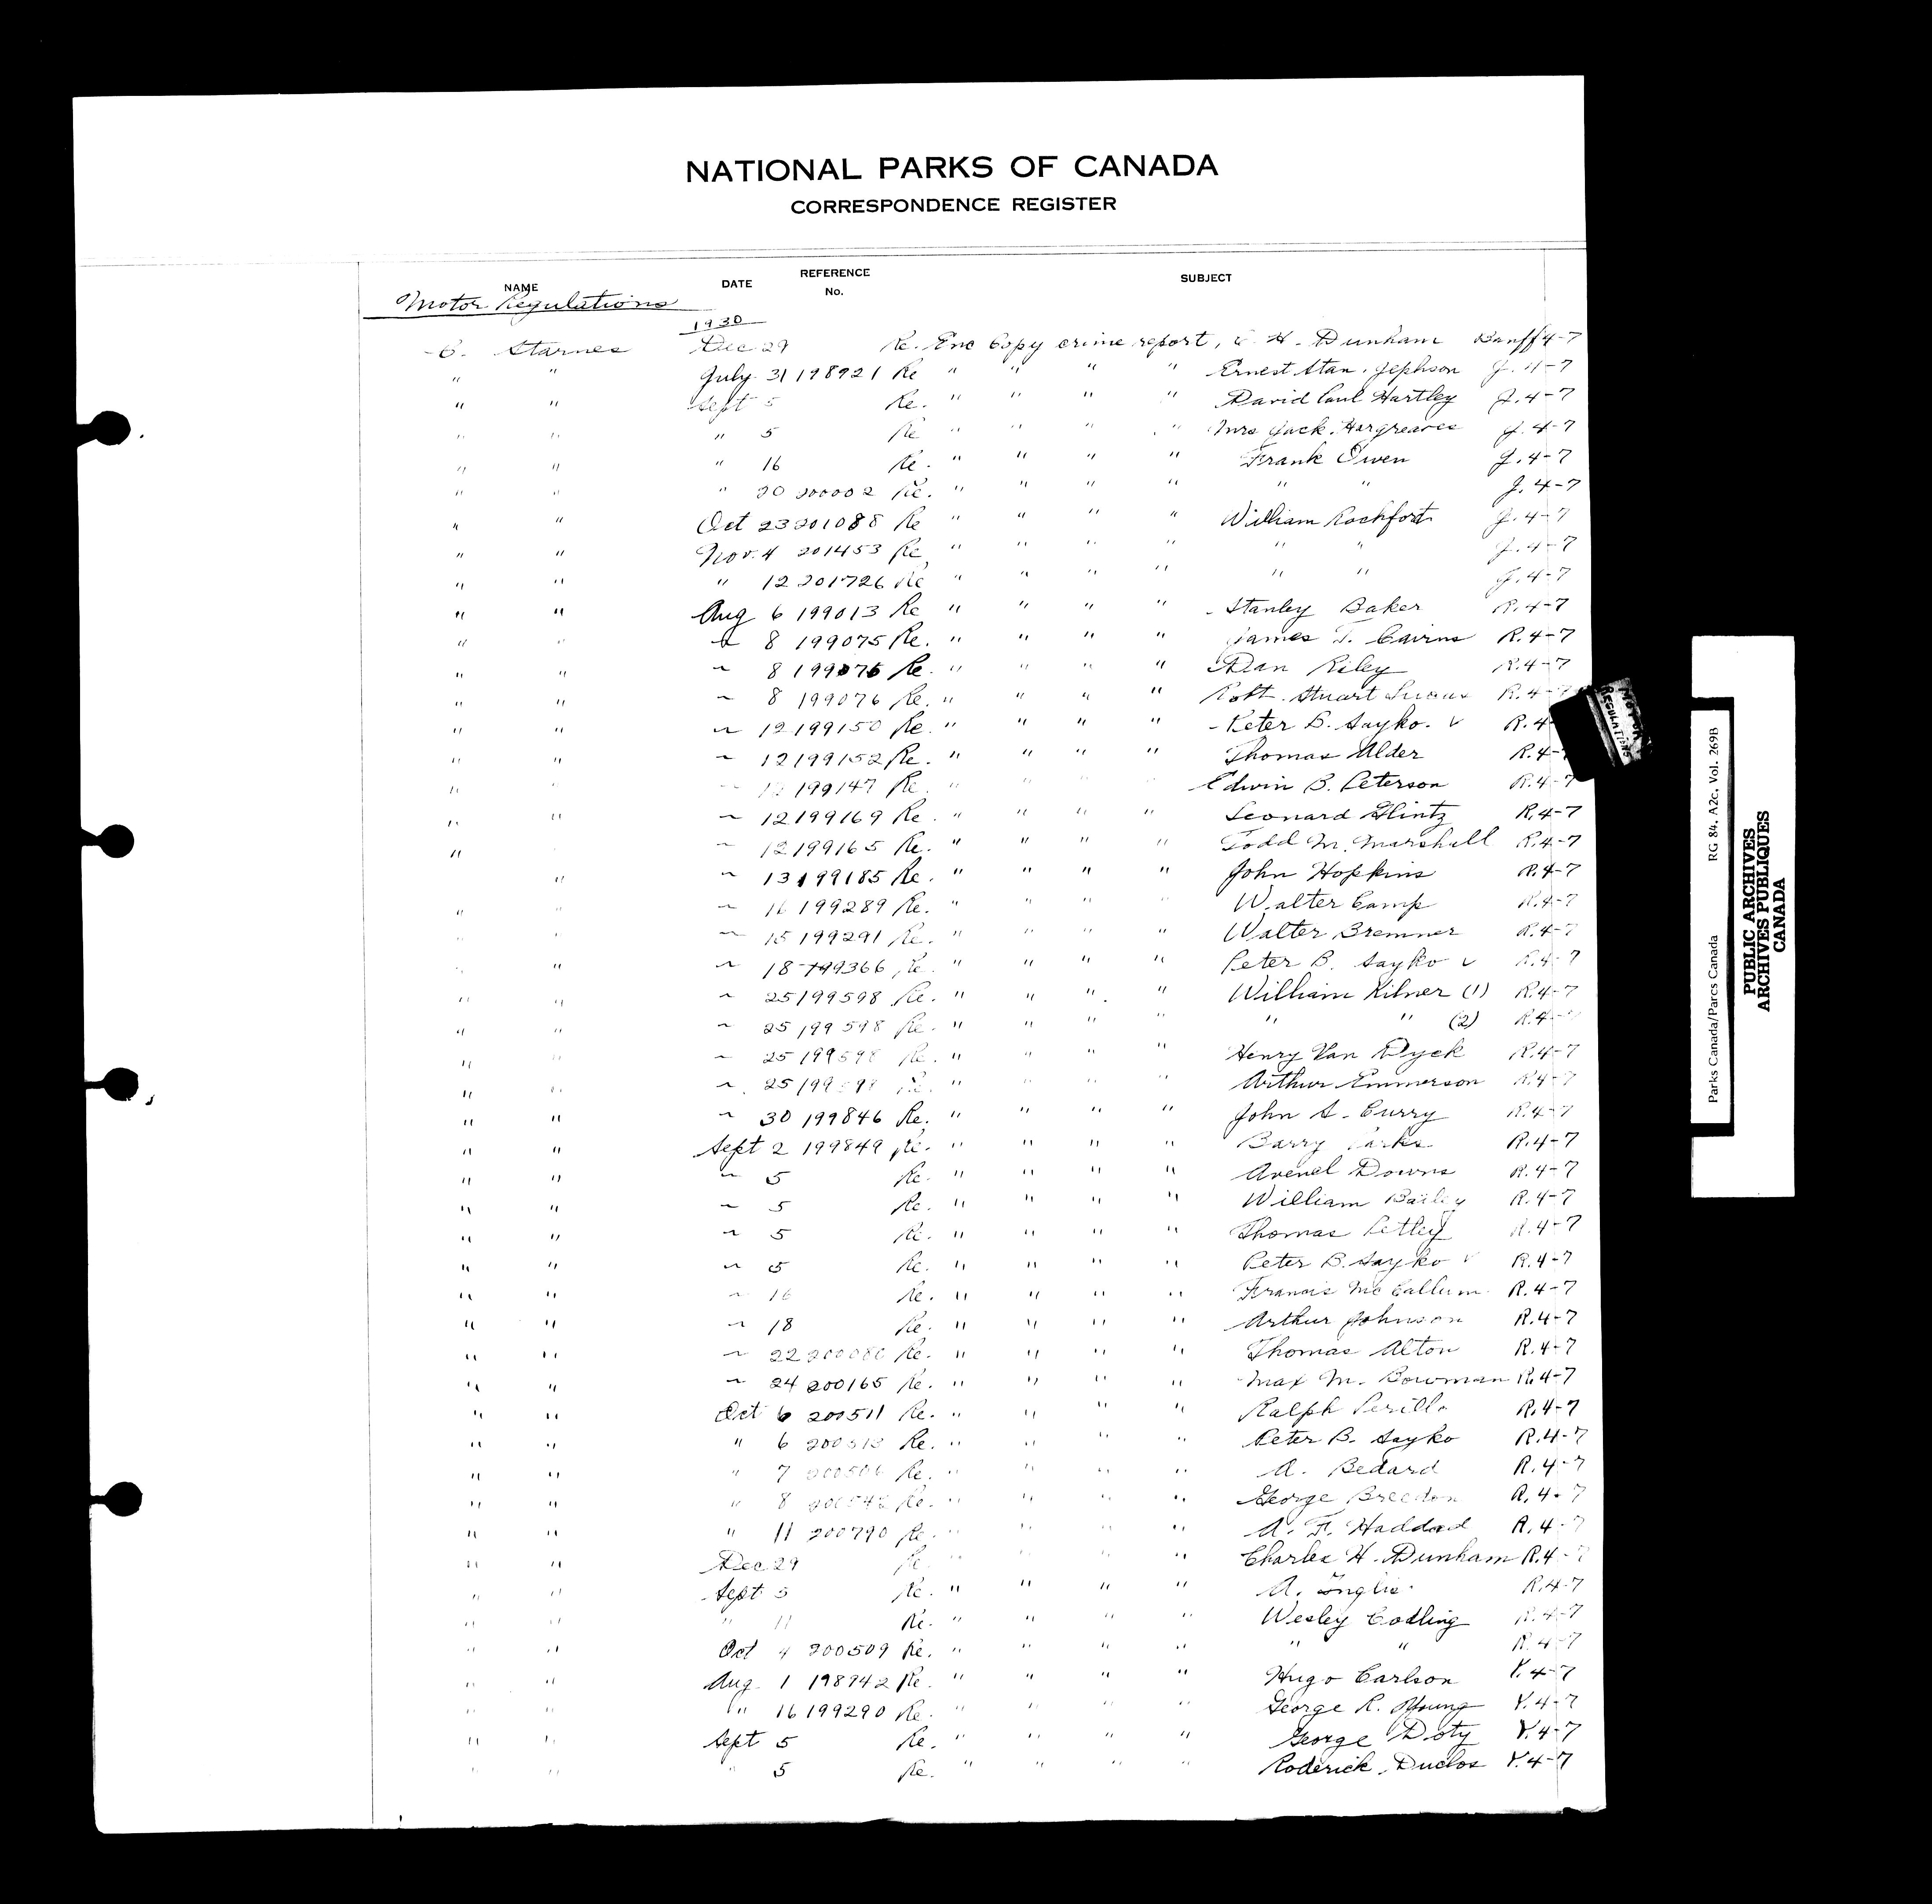 NATIONAL PARKS OF CANADA
CORRESPONDENCE REGISTER
NAME DATE REFERENCE No. SUBJECT
Motor Regulations
1930
C. Starnes Dec 29 Re. Enc Copy crime report, C. H. Dunham Banff 4-7
" " July 31 198921 Re " " " " Ernest Stan. Jephson J. 4-7
" " Sept 5 Re. " " " " David Paul Hartley J. 4-7
" " " 5 Re " " " " Mrs Jack Hargreaves J. 4-7
" " " 16 Re. " " " " Frank Owen J. 4-7
" " " 20 200002 Re. " " " " " " J. 4-7
" " Oct 23 201088 Re " " " " William Rochfort J. 4-7
" " Nov. 4 201453 Re " " " " " " J. 4-7
" " " 12 201726 Re " " " " " " J. 4-7
" " Aug 6 199013 Re " " " " Stanley Baker R. 4-7
" " " 8 199075 Re. " " " " James T. Cairns R. 4-7
" " " 8 199076 Re. " " " " Dan Riley R. 4-7
" " " 8 199076 Re. " " " " Robt. Stuart R. 4-7
" " " 12 199150 Re. " " " " Peter B. Sayko. v R. 4-
" " " 12 199152 Re. " " " " Thomas Alder R. 4-7
" " " 199147 Re. " " " " Edwin B. Peterson R. 4-7
" " " 12 199169 Re. " " " " Leonard Glintz R. 4-7
" " 12 199165 Re. " " " " Todd M. Marshall R. 4-7
" " 13 199185 Re. " " " " John Hopkins R. 4-7
" " " 16 199289 Re. " " " " Walter Camp R. 4-7
" " " 15 199291 Re. " " " " Walter Bremner R. 4-7
" " " 18 199366 Re. " " " " Peter B. Sayko v R. 4-7
" " " 25 199598 Re. " " " " William Kilner (1) R. 4-7
" " " 25 199598 Re. " " " " " " (2) R. 4-7
" " " 25 199598 Re. " " " " Henry Van Dyck R. 4-7
" " " 25 199598 Re. " " " " Arthur Emmerson R. 4-7
" " " 30 199846 Re. " " " " John S. Curry R. 4-7
" " Sept 2 199849 Re. " " " " Barry Parks R. 4-7
" " " 5 Re. " " " " Avenel Downs R. 4-7
" " " 5 Re. " " " " William Bailey R. 4-7
" " " 5 Re. " " " " Thomas Petley R. 4-7
" " " 5 Re. " " " " Peter B. Sayko v R. 4-7
" " " 16 Re. " " " " Francis McCallum R. 4-7
" " " 18 Re. " " " " Arthur Johnson R. 4-7
" " " 22 200080 Re. " " " " Thomas Alton R. 4-7
" " " 24 200165 Re. " " " " Max M. Bowman R. 4-7
" " Oct 6 200511 Re. " " " " Ralph Perillo R. 4-7
" " " 6 200513 Re. " " " " Peter B. Sayko R. 4-7
" " " 7 200506 Re. " " " " A. Bedard R. 4-7
" " " 8 200548 Re. " " " " George Breedon R. 4-7
" " " 11 200790 Re. " " " " A. F. Haddad R. 4-7
" " Dec 29 Re. " " " " Charles H. Dunham R. 4-7
" " Sept 5 Re. " " " " A. Inglis. R. 4-7
" " " 11 Re. " " " " Wesley Codling R. 4-7
" " Oct 4 200509 Re. " " " " " " R. 4-7
" " Aug 1 198942 Re. " " " " Hugo Carlson Y. 4-7
" " " 16 199290 Re. " " " " George R. Young Y. 4-7
" " Sept 5 Re. " " " " George Doty Y. 4-7
" " " 5 Re. " " " " Roderick Duclos Y. 4-7
MOTOR
REGULATIONS
Parks Canada/Parcs Canada RG 84, A2c, Vol. 269B
PUBLIC ARCHIVES
ARCHIVES PUBLIQUES
CANADA